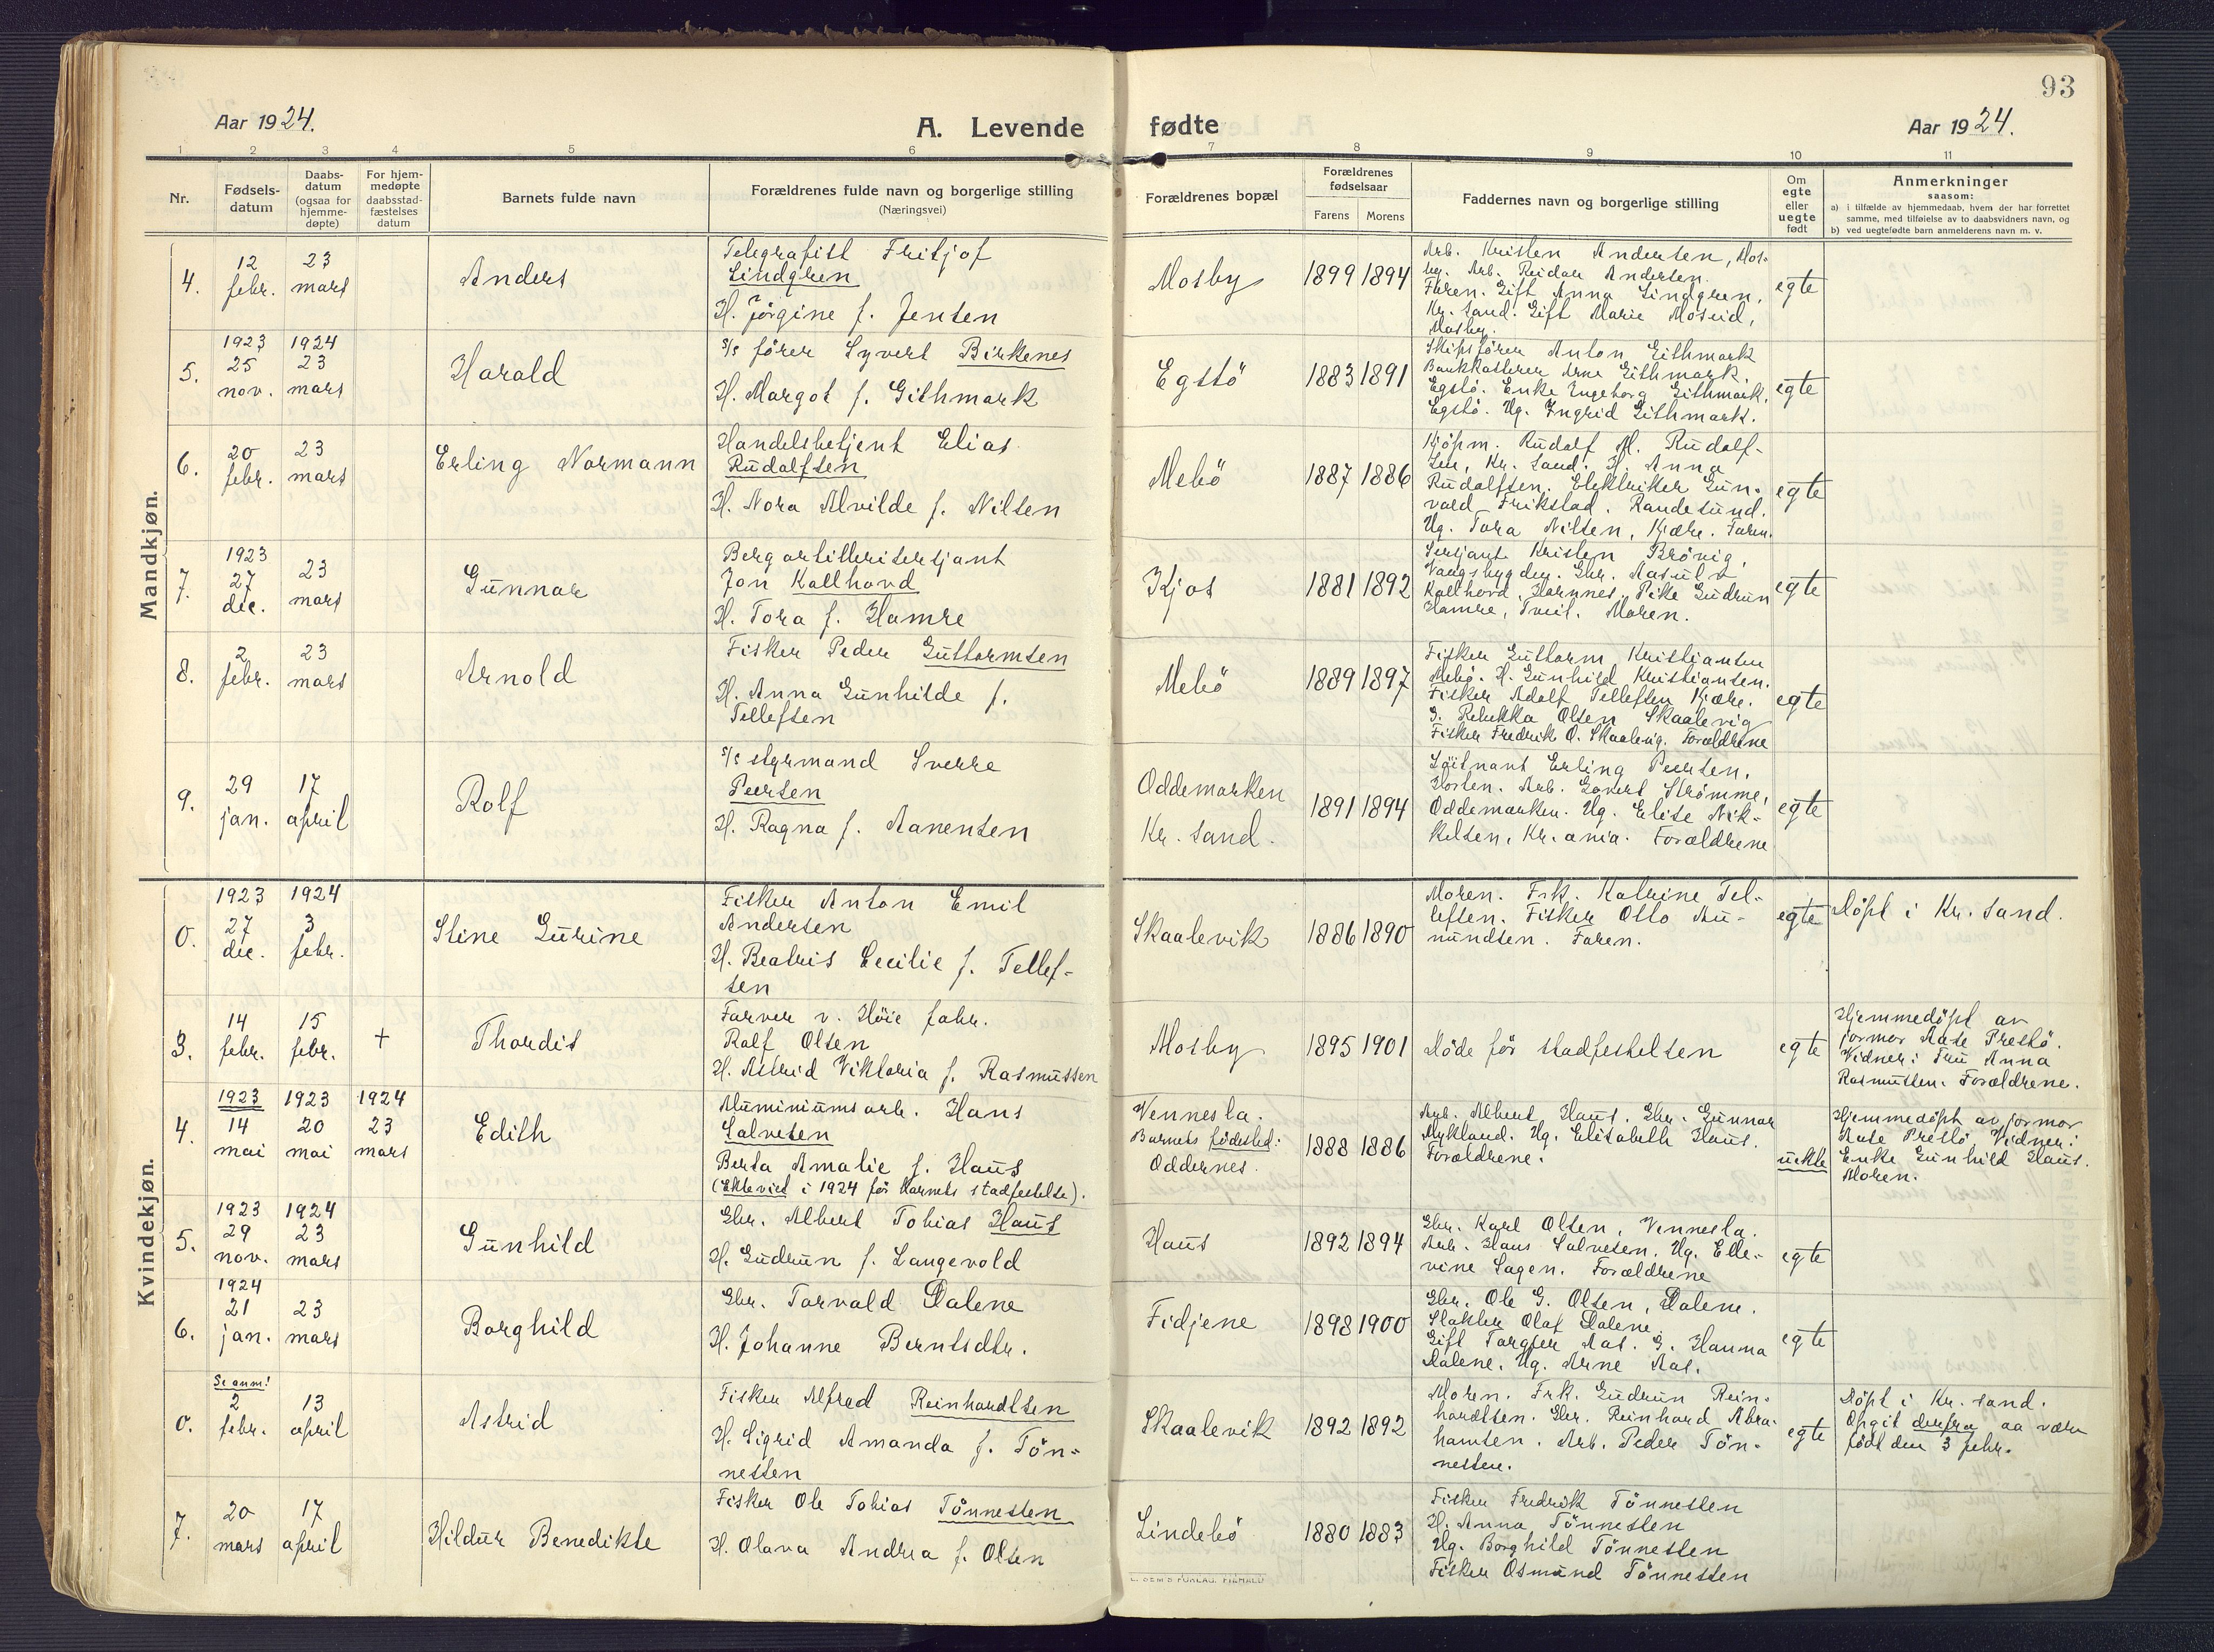 93
Aar 1924.
A. Levende fødte
Aar 1924.
1 2 3 4 5 6 7 8 9 10 11
Nr.
Fødsels-
datum
Daabs-
datum
(ogsaa for
hjemme-
døpte)
For hjem-
medøpte
daabsstad-
fæstelses
datum
Barnets fulde navn
Forældrenes fulde navn og borgerlige stilling
(Næringsvei)
Forældrenes bopæl
Forældrenes
fødselsaar
Farens Morens
Faddernes navn og borgerlige stilling
Om
egte
eller
uegte
født
Anmerkninger
saasom:
a) i tilfælde av hjemmedaab, hvem der har forrettet
samme, med tilføielse av to daabsvidners navn, og
b) ved uegtefødte barn anmelderens navn m. v.
Mandkjøn.
4.
12
febr.
23
mars
Anders
Telegrafist Fritjof
Lindgren
H. Jörgine f. Jensen
Mosby
1899 1894
Arb. Kristen Andersen, Mos-
by. Arb. Reidar Andersen.
Faren. Gift Anna Lindgren,
Kr. sand. Gift Marie Moseid,
Mosby.
egte
5.
1923
25
nov.
1924
23
mars
Harald
s/s förer Syvert Birkenes
H. Margot f. Githmark
Egstö
1883 1891
Skipsförer Anton Githmark
Bankkasserer Arne Githmark.
Egstö. Enke Ingeborg Githmark,
Egstö. Ug. Ingrid Githmark.
egte
6.
20
febr.
23
mars
Erling Normann
Handelsbetjent Elias
Rudolfsen
H. Nora Alvilde f. Nilsen
Mebö
1887 1886
Kjöpm. Rudolf M. Rudolf-
sen, Kr. sand. H. Anna
Rudolfsen. Elektriker Gun-
vald Frikstad. Randesund.
Ug. Tora Nilsen, Kjære. Faren.
egte
7.
1923
27
dec.
23
mars
Gunnar
Bergartillerisersjant
Jon Kallhovd
H. Tora f. Hamre
Kjos
1881 1892
Sersjant Kristen Brövig,
Vaagsbygden. Gbr. Aasulv
Kallhovd, Hornnes. Pike Gudrun
Hamre, Tveit. Moren.
egte
8.
2
febr.
23
mars
Arnold
Fisker Peder Guttormsen
H. Anna Gunhilde f.
Tellefsen
Mebö
1889 1897
Fisker Guttorm Kristiansen
Mebö. H. Gunhild Kristiansen.
Fisker Adolf Tellefsen Kjære.
G. Rebekka Olsen Skaalevig
Fisker Fredrik O. Skaalevig. Forældrene
egte
9.
29
jan.
17
april
Rolf
s/s styrmand Sverre
Peersen
H. Ragna f. Aanensen
Oddemarken
Kr. sand.
1891 1894
Löitnant Erling Peersen,
Horten. Arb. Govert Strömme,
Oddemarken. Ug. Elise Nik-
kelsen, Kr. ania. Forældrene
egte
Kvindekjøn.
0.
1923
27
dec.
1924
3
febr.
Stine Gurine
Fisker Anton Emil
Andersen
H. Beatris Cecilie f. Tellef-
sen
Skaalevik
1886 1890
Moren. Frk. Katrine Tel-
lefsen. Fisker Otto Au-
nundsen. Faren.
egte
Döpt i Kr. sand.
3.
14
febr.
15
febr.
+
Thordis
Farver v. Höie fabr.
Rolf Olsen
H. Astrid Viktoria f. Rasmussen
Mosby
1895 1901
Döde för stadfestelsen
egte
Hjemmedöpt av
jormor Aase Prestö.
Vidner: Fru Anna
Rasmussen. Forældrene.
4.
1923
14
mai
1923
20
mai
1924
23
mars
Edith
Aluminiumsarb. Hans
Salvesen
Berta Amalie f. Haus
(Ektevied i 1924 för barnets stadfestelse).
Vennesla.
Barnets födested:
Oddernes.
1888 1886
Arb. Albert Haus. Gbr. Gunnar
Mykland. Ug. Elisabeth Haus.
Forældrene.
uekte
Hjemmedöpt av jormor
Aase Prestö, Vidner:
Enke Gunhild Haus.
Moren.
5.
1923
29
nov.
1924
23
mars
Gunhild
Gbr. Albert Tobias Haus
H. Gudrun f. Langevold
Haus
1892 1894
Gbr. Karl Olsen, Vennesla.
Arb. Hans Salvesen. Ug. Elle-
vine Sagen. Forældrene
egte
6.
1924
21
jan.
23
mars
Borghild
Gbr. Torvald Dalene
H. Johanne Berntsdtr.
Fidjene
1898 1900
Gbr. Ole G. Olsen, Dalene.
Slakter Olaf Dalene.
Gift Torgjer Aas. G. Hanna
Dalene. Ug. Arne Aas.
egte
0.
Se anm!
2
febr.
13
april
Astrid
Fisker Alfred Reinhardtsen
H. Sigrid Amanda f. Tön-
nessen
Skaalevik
1892 1892
Moren. Frk. Gudrun Rein-
hardtsen. Gbr. Reinhard Abra-
hamsen. Arb. Peder Tön-
nessen.
egte
Döpt i Kr. sand.
Opgit derfra aa være
född den 3 febr.
7.
20
mars
17
april
Hildur Benedikte
Fisker Ole Tobias Tönnessen
H. Olava Andrea f. Olsen
Lindebö
1880 1883
Fisker Fredrik Tönnessen
H. Anna Tönnessen
Ug. Borghild Tönnessen
Fisker Osmund Tönnessen